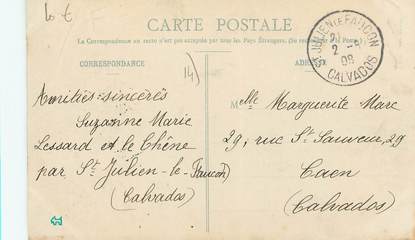 10 €
CARTE POSTALE
La Correspondance au recto n'est pas acceptée par tous les Pays Étrangers. (Se renseigner à la Poste).
CORRESPONDANCE
ADRESSE
14)
ST JULIEN LE FAUCON
2
08
CALVADOS
Amitiés sincères
Suzanne Marie
Lessard et le Chêne
par St Julien-le-Faucon
(Calvados)
Melle Marguerite Marc
29, rue St Sauveur, 29
Caen
(Calvados)